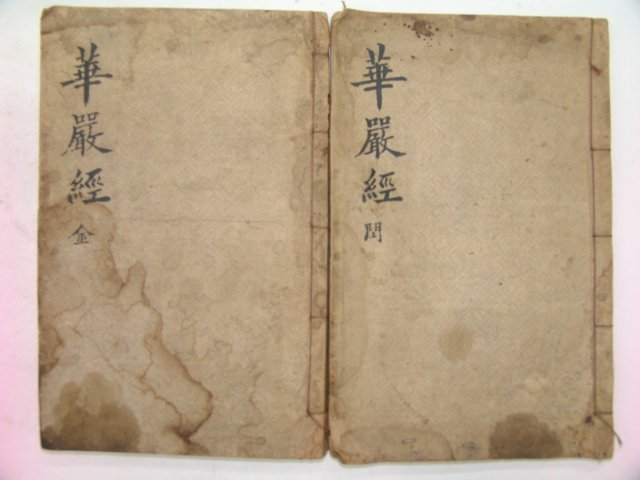 華嚴經
閏
華嚴經
金